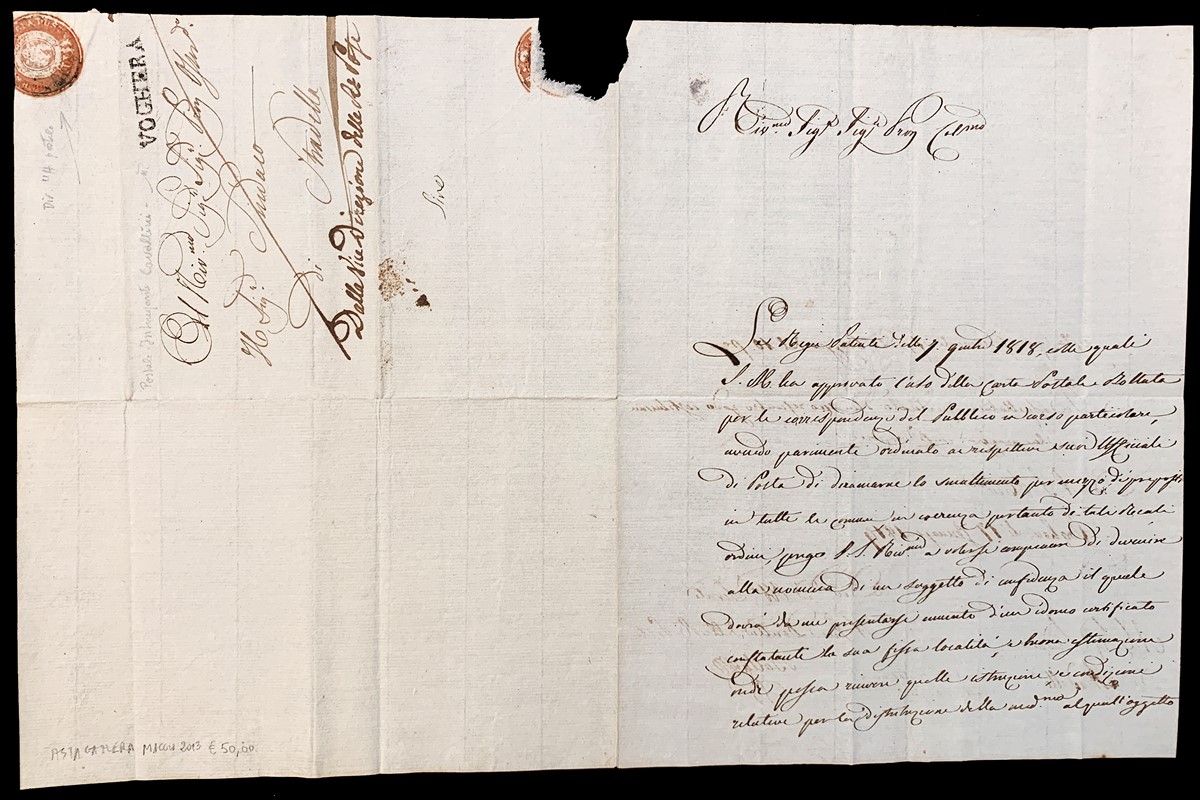 VOGHERA
All Riv.mo Sig.r Sig.r Pron Oss.mo
Il Sig.r Sindaco
di Stradella
Dalla Vice Direzione delle R.e Poste
Postale Interessante Cavallini
ASTA GAZZERA MAGGIO 2013 € 50,00
Riv.mo Sig.r Sig.r Pron Col.mo
Le Regie Patenti delli 7 9mbre 1818, colle quali
S. M. ha approvato l'uso della Carta Postale Bollata
per le corrispondenze del Pubblico in corso particolare,
avendo parimente ordinato ai rispettivi suoi Ufficiali
di Posta di diramarne lo smaltimento per mezzo di preposti
in tutte le comuni in coerenza pertanto di tali Reali
ordini, prego V. S. Riv.ma a volersi compiacere di divenire
alla nomina di un soggetto di confidenza il quale
dovrà da me presentarsi munito d'un idoneo certificato
constatante la sua fissa località, e buona estimazione
onde possa ricever quelle istruzioni e condizioni
relative per la distribuzione della med.ma al quall'oggetto